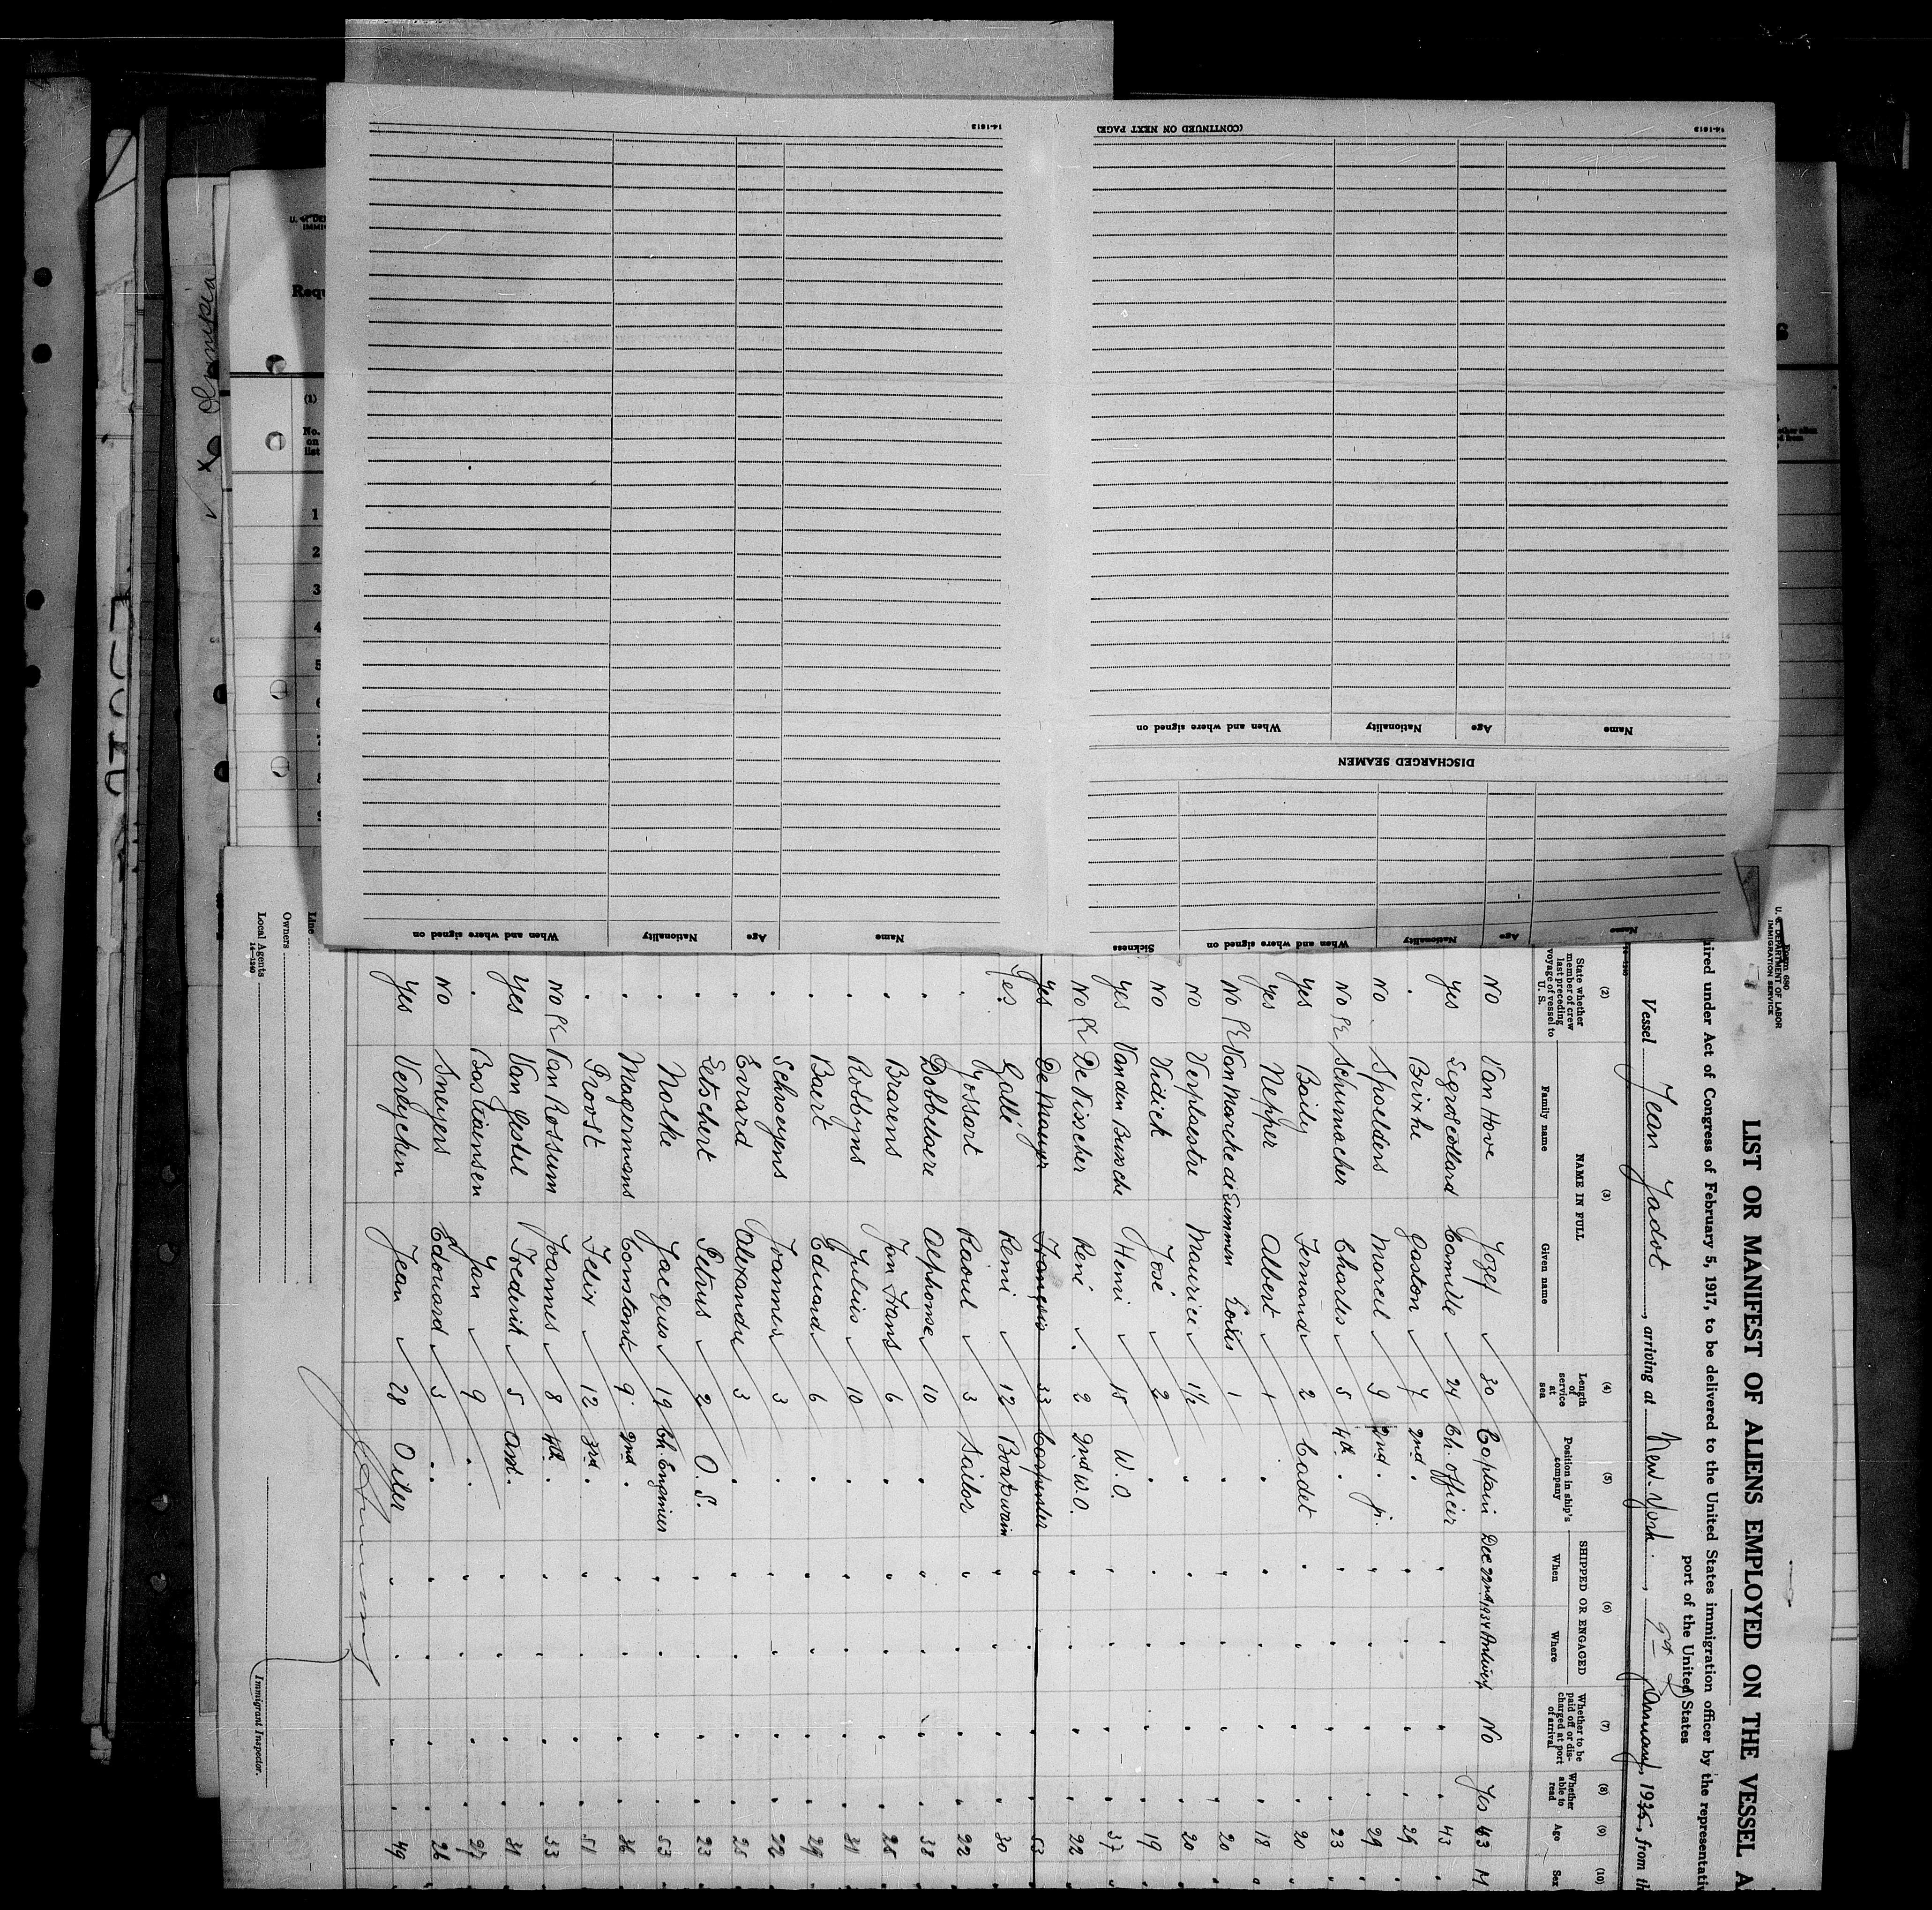 Form 680
U. S. DEPARTMENT OF LABOR
IMMIGRATION SERVICE
LIST OR MANIFEST OF ALIENS EMPLOYED ON THE VESSEL A
uired under Act of Congress of February 5, 1917, to be delivered to the United States immigration officer by the representativ
port of the United States
Vessel Jean Jadot, arriving at New-York, January, 1935, from th
14-1240
(2) (3) (4) (5) (6) (7) (8) (9) (10)
State whether member of crew last preceding voyage of vessel to U. S. NAME IN FULL Family name Given name Length of service at sea Position in ship's company SHIPPED OR ENGAGED When Where Whether to be paid off or discharged at port of arrival Whether able to read Age Sex
No Van Hove Jozef 30 Captain Dec 22nd 1934 No Yes 43 M
Yes Camille 24 Ch. Officer 43
. Brixhe Gaston 7 2nd . 29
No Spoelders Marcel 9 2nd . jr. 29
No Schumacher Charles 5 4th . 23
Yes Baily Fernand 2 Cadet 20
Yes Nepper Albert 1 . 18
No Van Marcke de Lummen Louis 1 . 20
No Verplaestre Maurice 1½ . 20
No Vidick José 2 . 19
Yes Vanden Bussche Henri 15 W.O. 37
No De Visscher René 2 2nd W.O. 22
Yes De Mayer François 33 Carpenter 53
Yes Gallé Remi 12 Boatswain 30
. Gossart Raoul 3 Sailor 22
. Dobbelaere Alphonse 10 . 38
. Brarens Jan Frans 6 . 25
. Robbyns Julius 10 . 31
. Baert Eduard 6 . 29
. Schroeyens Joannes 3 . 22
. Evrard Alexandre 3 . 25
. Letschert Petrus 2 O.S. 23
. Nolke Jacques 19 Ch. Engineer 53
. Magermans Constant 9 2nd . 36
. Proost Felix 12 3rd . 51
No Van Rossum Joannes 8 4th . 33
Yes Van Gestel Frederik 5 Asst. 31
. Bastiaensen Jan 9 . . 27
No Sneyers Edouard 3 . . 26
Yes Verlycken Jean 28 Oiler 49
Line
Owners
Local Agents
14-1240
Immigrant Inspector.
14-1613
(CONTINUED ON NEXT PAGE)
14-1613
Name Age Nationality When and where signed on
DISCHARGED SEAMEN
Name Age Nationality When and where signed on Sickness
Name Age Nationality When and where signed on
U. S. DE
IMMIG
Requ
(1)
No. on list
1
2
3
4
5
6
7
8
9